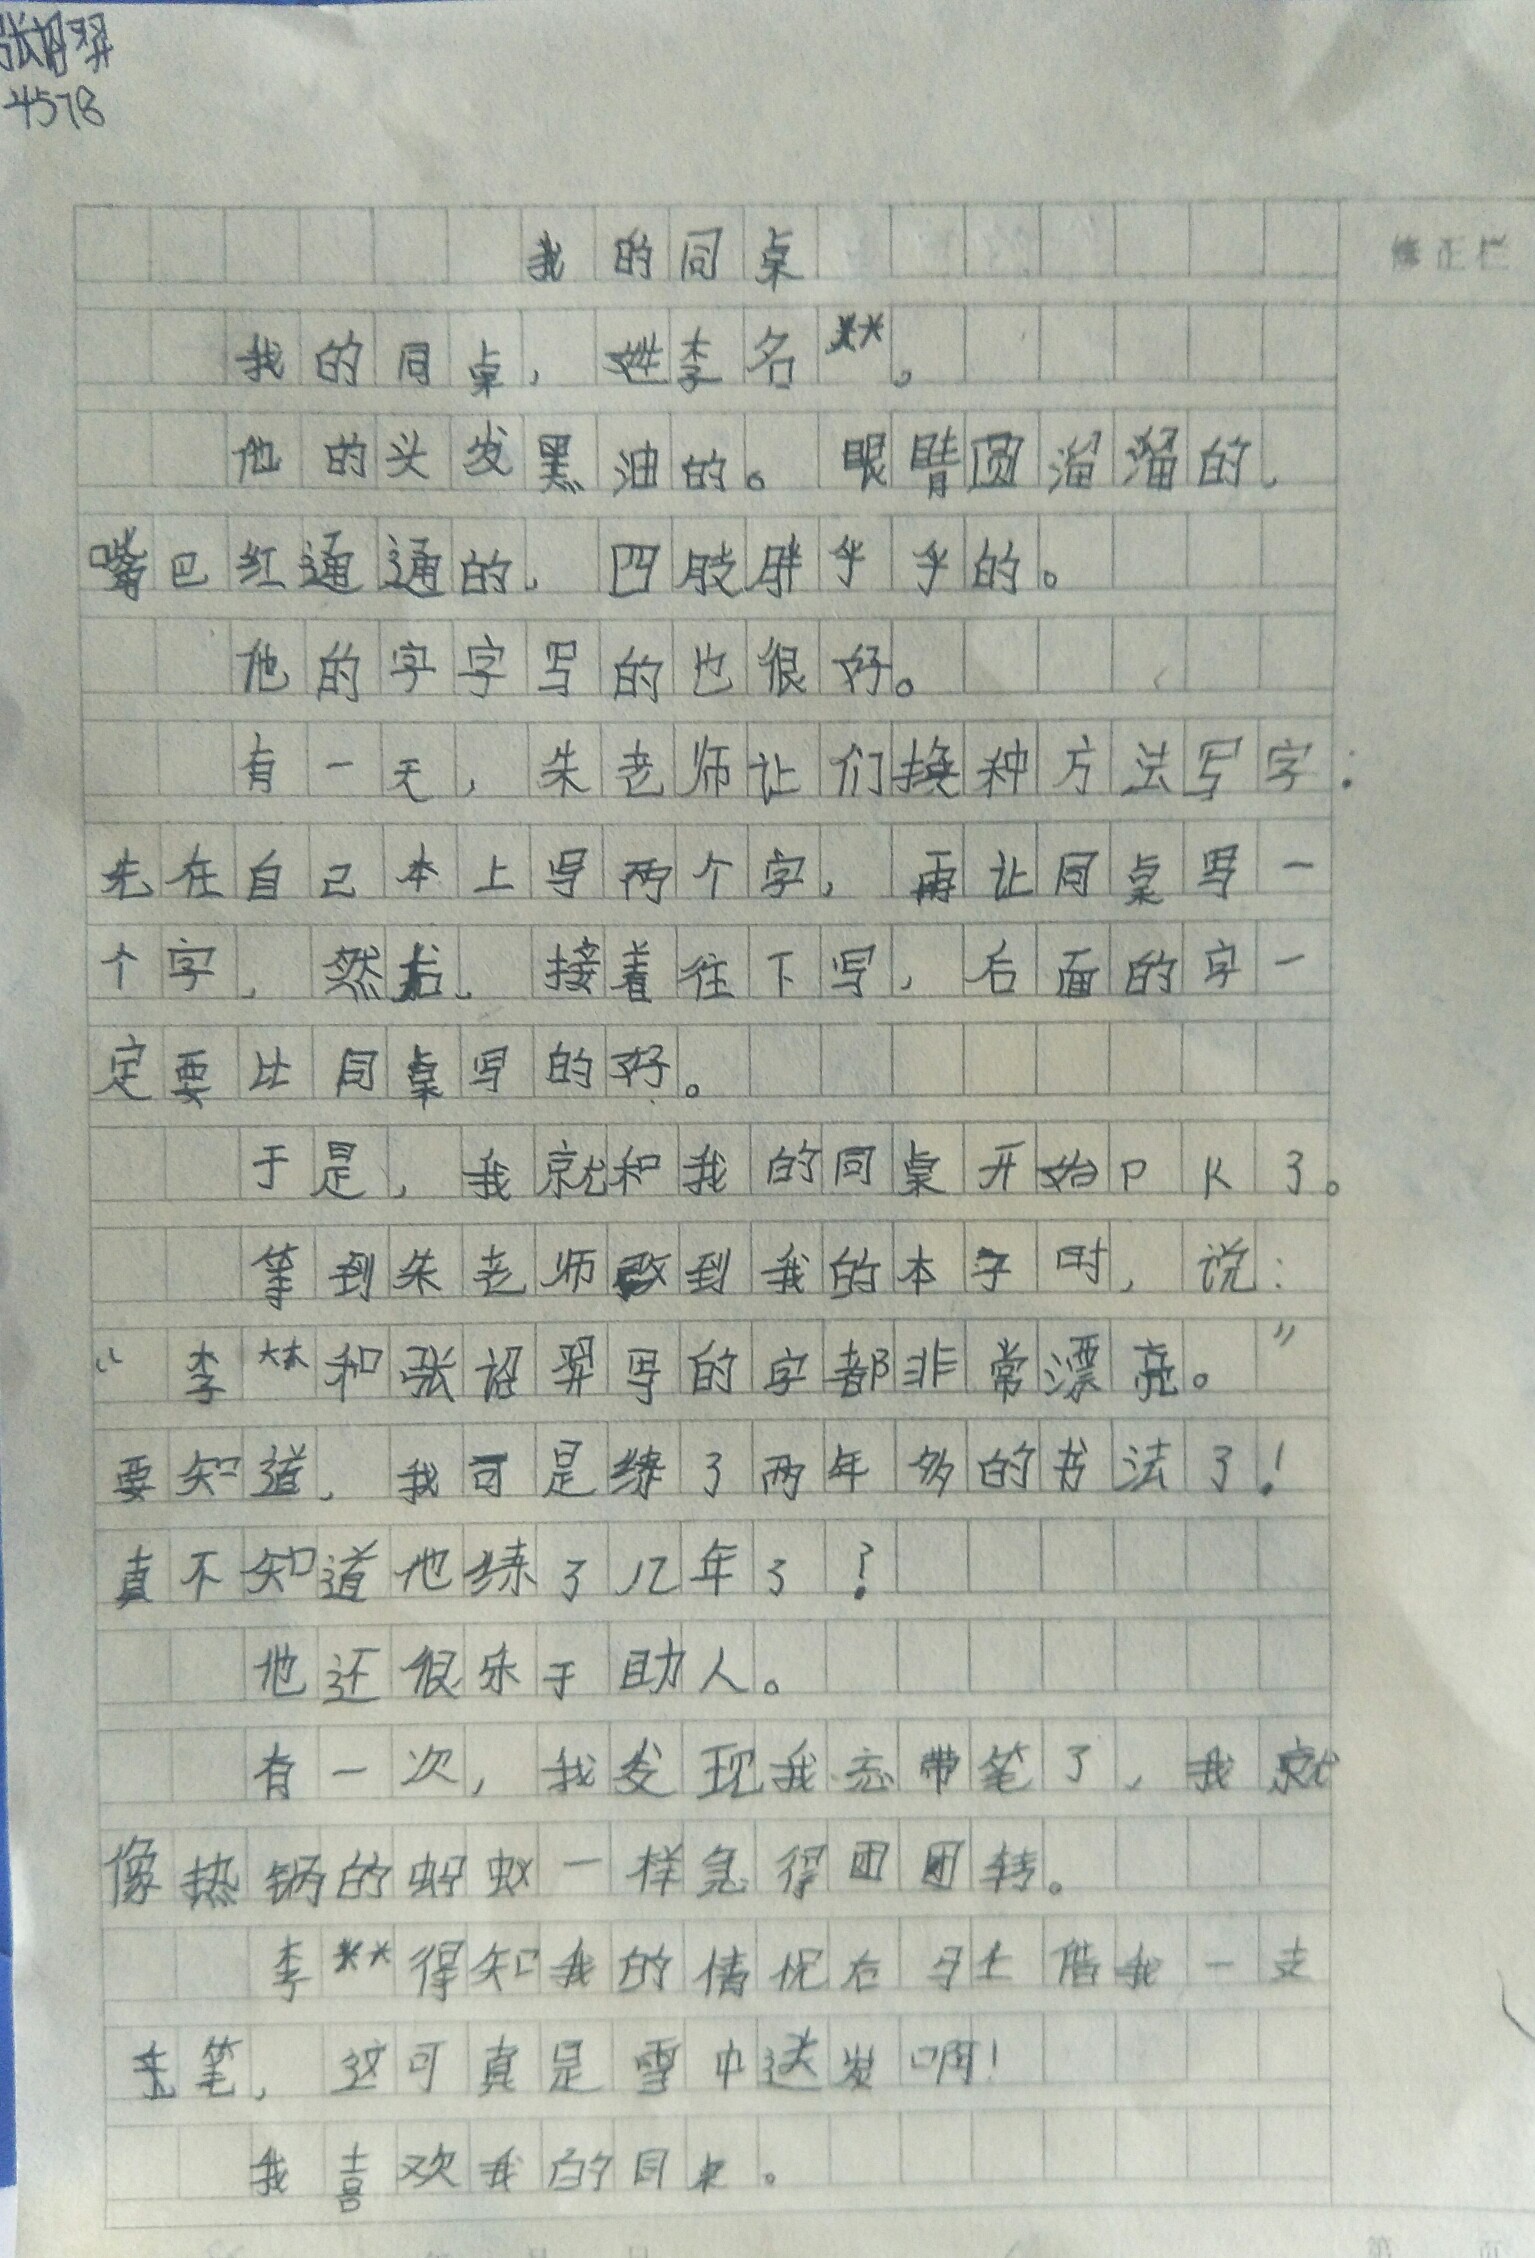 4578
我的同桌
修正栏
我的同桌，姓李名**。
他的头发黑油的。眼睛圆溜溜的，
嘴巴红通通的，四肢胖乎乎的。
他的字字写的也很好。
有一天，朱老师让们换种方法写字：
先在自己本上写两个字，再让同桌写一
个字，然后，接着往下写，后面的字一
定要比同桌写的好。
于是，我就和我的同桌开始PK了。
等到朱老师改到我的本子时，说：
“李**和张诏羿写的字都非常漂亮。”
要知道，我可是练了两年多的书法了！
真不知道他练了几年了？
他还很乐于助人。
有一次，我发现我忘带笔了，我就
像热锅的蚂蚁一样急得团团转。
李**得知我的情况后马上借我一支
笔，这可真是雪中送发啊！
我喜欢我的同桌。